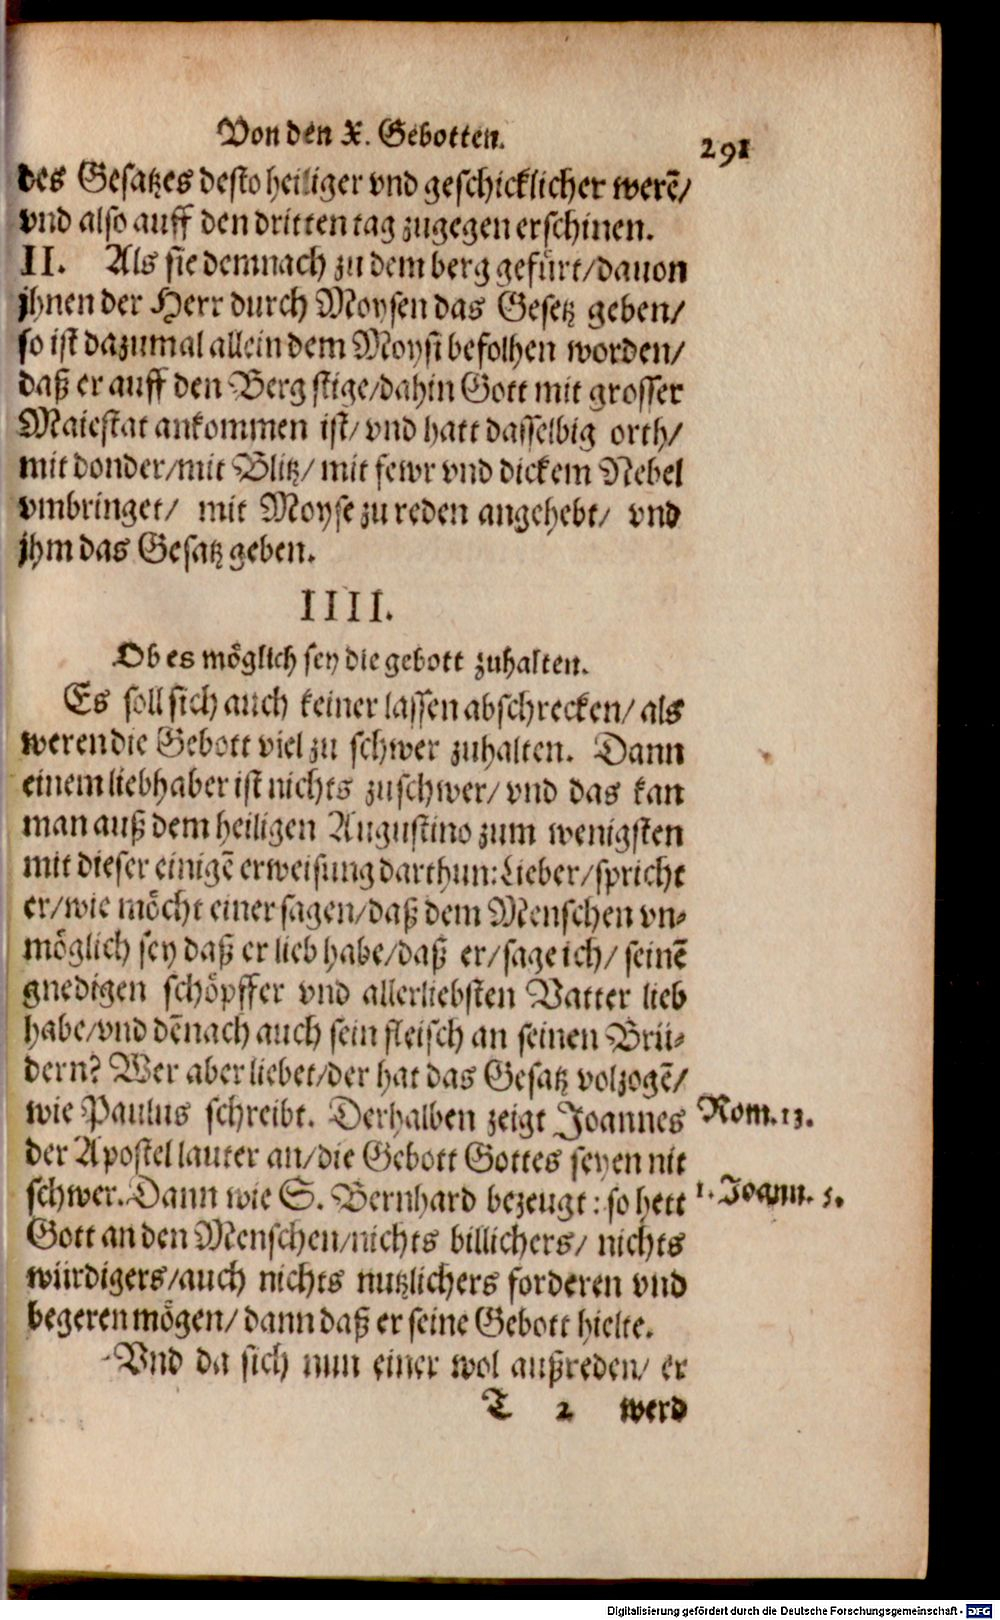 Von den X. Gebotten. 291
des Gesatzes desto heiliger vnd geschicklicher werẽ/
vnd also auff den dritten tag zugegen erschinen.
II. Als sie demnach zu dem berg gefürt/dauon
jhnen der Herr durch Moysen das Gesetz geben/
so ist dazumal allein dem Moysi befolhen worden/
daß er auff den Berg stige/dahin Gott mit grosser
Maiestat ankommen ist/ vnd hatt dasselbig orth/
mit donder/mit Blitz/ mit fewr vnd dickem Nebel
vmbringet/ mit Moyse zu reden angehebt/ vnd
jhm das Gesatz geben.
IIII.
Ob es möglich sey die gebott zuhalten.
Es soll sich auch keiner lassen abschrecken/ als
weren die Gebott viel zu schwer zuhalten. Dann
einem liebhaber ist nichts zuschwer/ vnd das kan
man auß dem heiligen Augustino zum wenigsten
mit dieser einigẽ erweisung darthun: Lieber/spricht
er/wie möcht einer sagen/daß dem Menschen vn-
möglich sey daß er lieb habe/daß er/sage ich/ seinẽ
gnedigen schöpffer vnd allerliebsten Vatter lieb
habe/vnd dẽnach auch sein fleisch an seinen Brü-
dern? Wer aber liebet/der hat das Gesatz volzogẽ/
wie Paulus schreibt. Derhalben zeigt Joannes Rom. 13.
der Apostel lauter an/die Gebott Gottes seyen nit
schwer. Dann wie S. Bernhard bezeugt: so hett 1. Joann. 5.
Gott an den Menschen/nichts billichers/ nichts
würdigers/auch nichts nutzlichers forderen vnd
begeren mögen/ dann daß er seine Gebott hielte.
Vnd da sich nun einer wol außreden/ er
T 2 werd
Digitalisierung gefördert durch die Deutsche Forschungsgemeinschaft - DFG